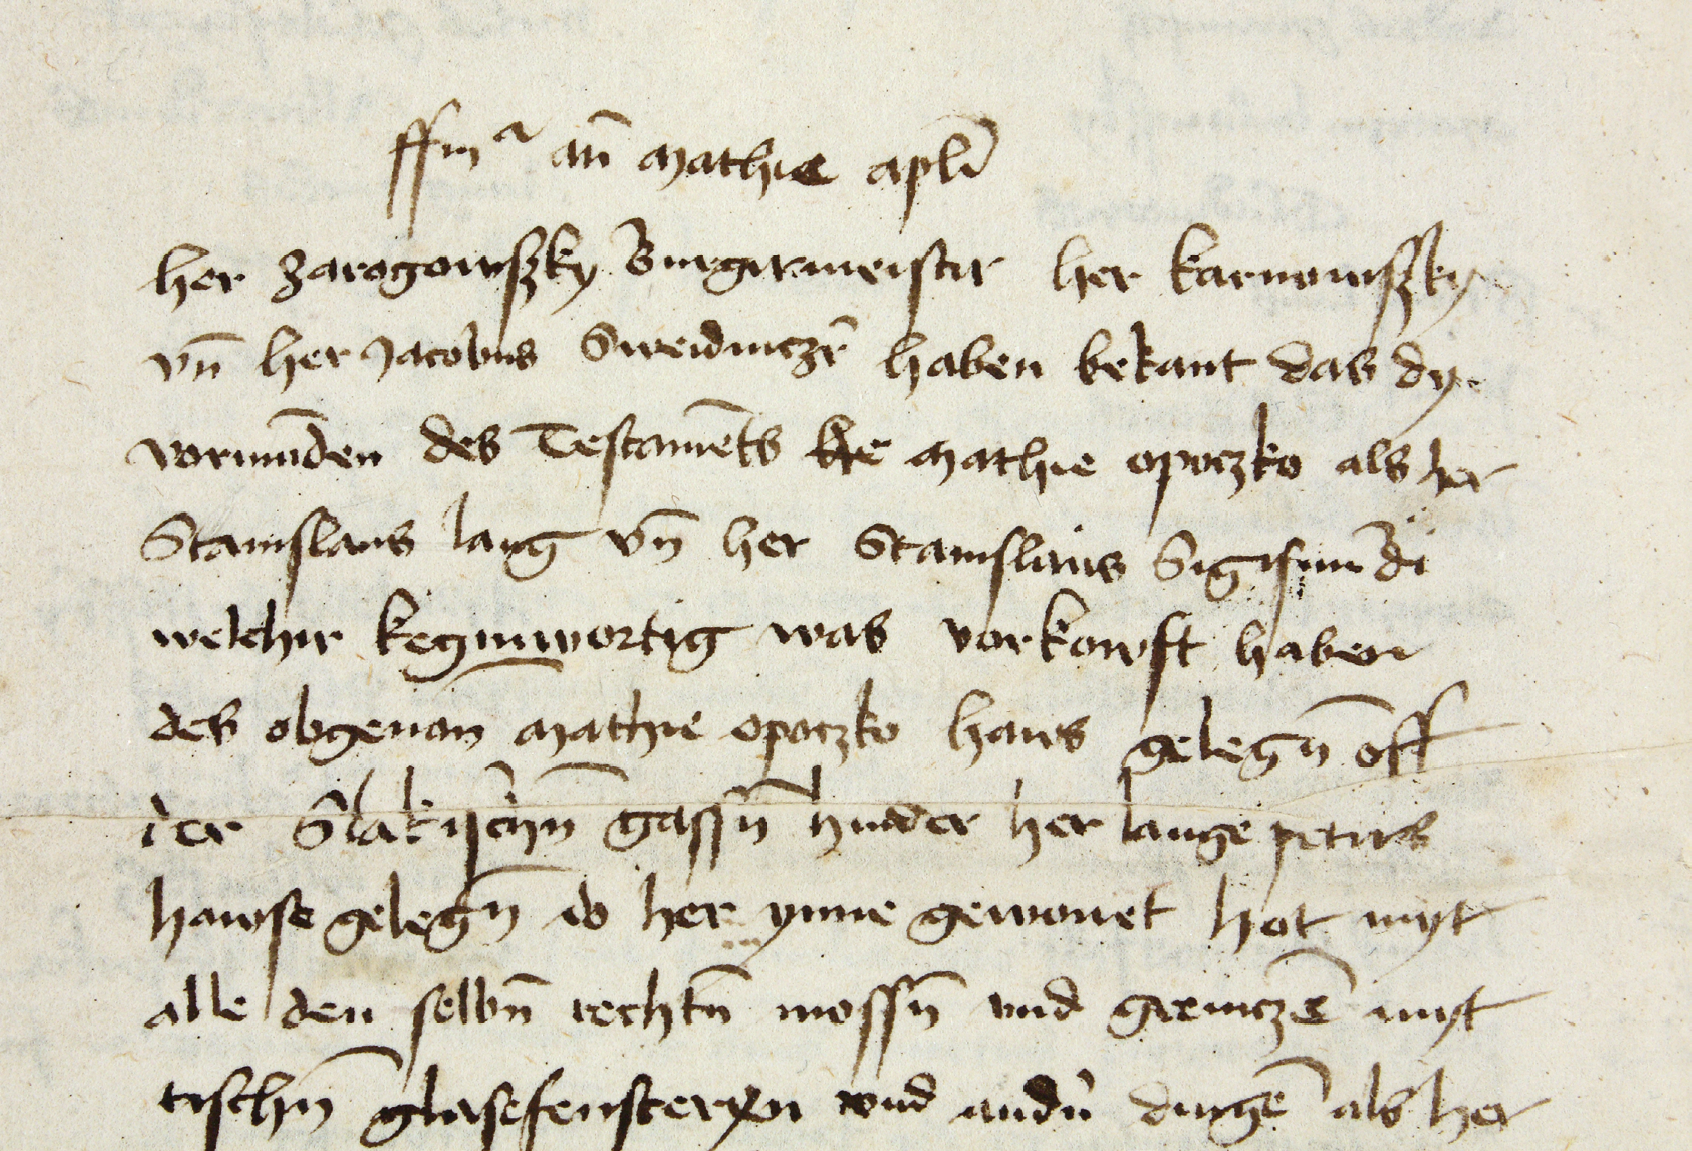 ffiiiᵃ an̄ mathie apl̄i
her Zarogowßky Burgirmeistir her karnowßky
vn̄ her Jacobus Sweidniczr̄ haben bekant das dy
vormūden des Testamēts he mathie opoczko als her
Stanislaus lang vn̄ her Stanislaus Sigismūdi
welchir keginwortig was vorkowft haben
des obgenan mathie opoczko haus gelegn̄ off
der gassn̄ hinder her lange petirs
hawse gelegn̄ do her ynne gewonet hot myt
alle den selbn̄ rechtn̄ mossn̄ vnd greniczē myt
tischn̄ glasefensteryn vnd andn̄ dingē als her